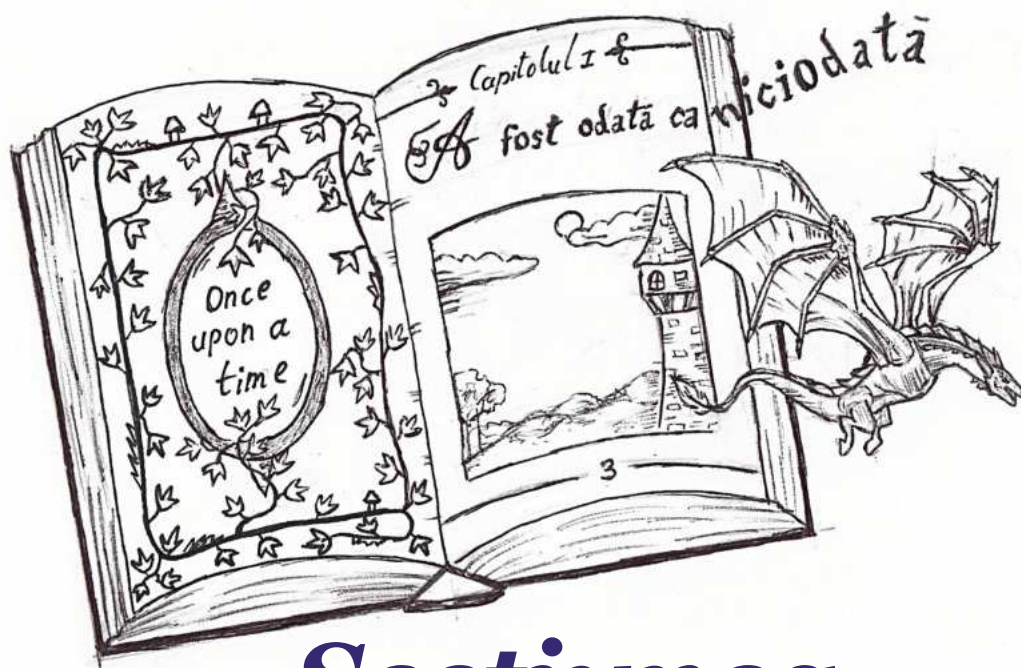 Once
upon a
time
Capitolul I
A fost odată ca niciodată
3